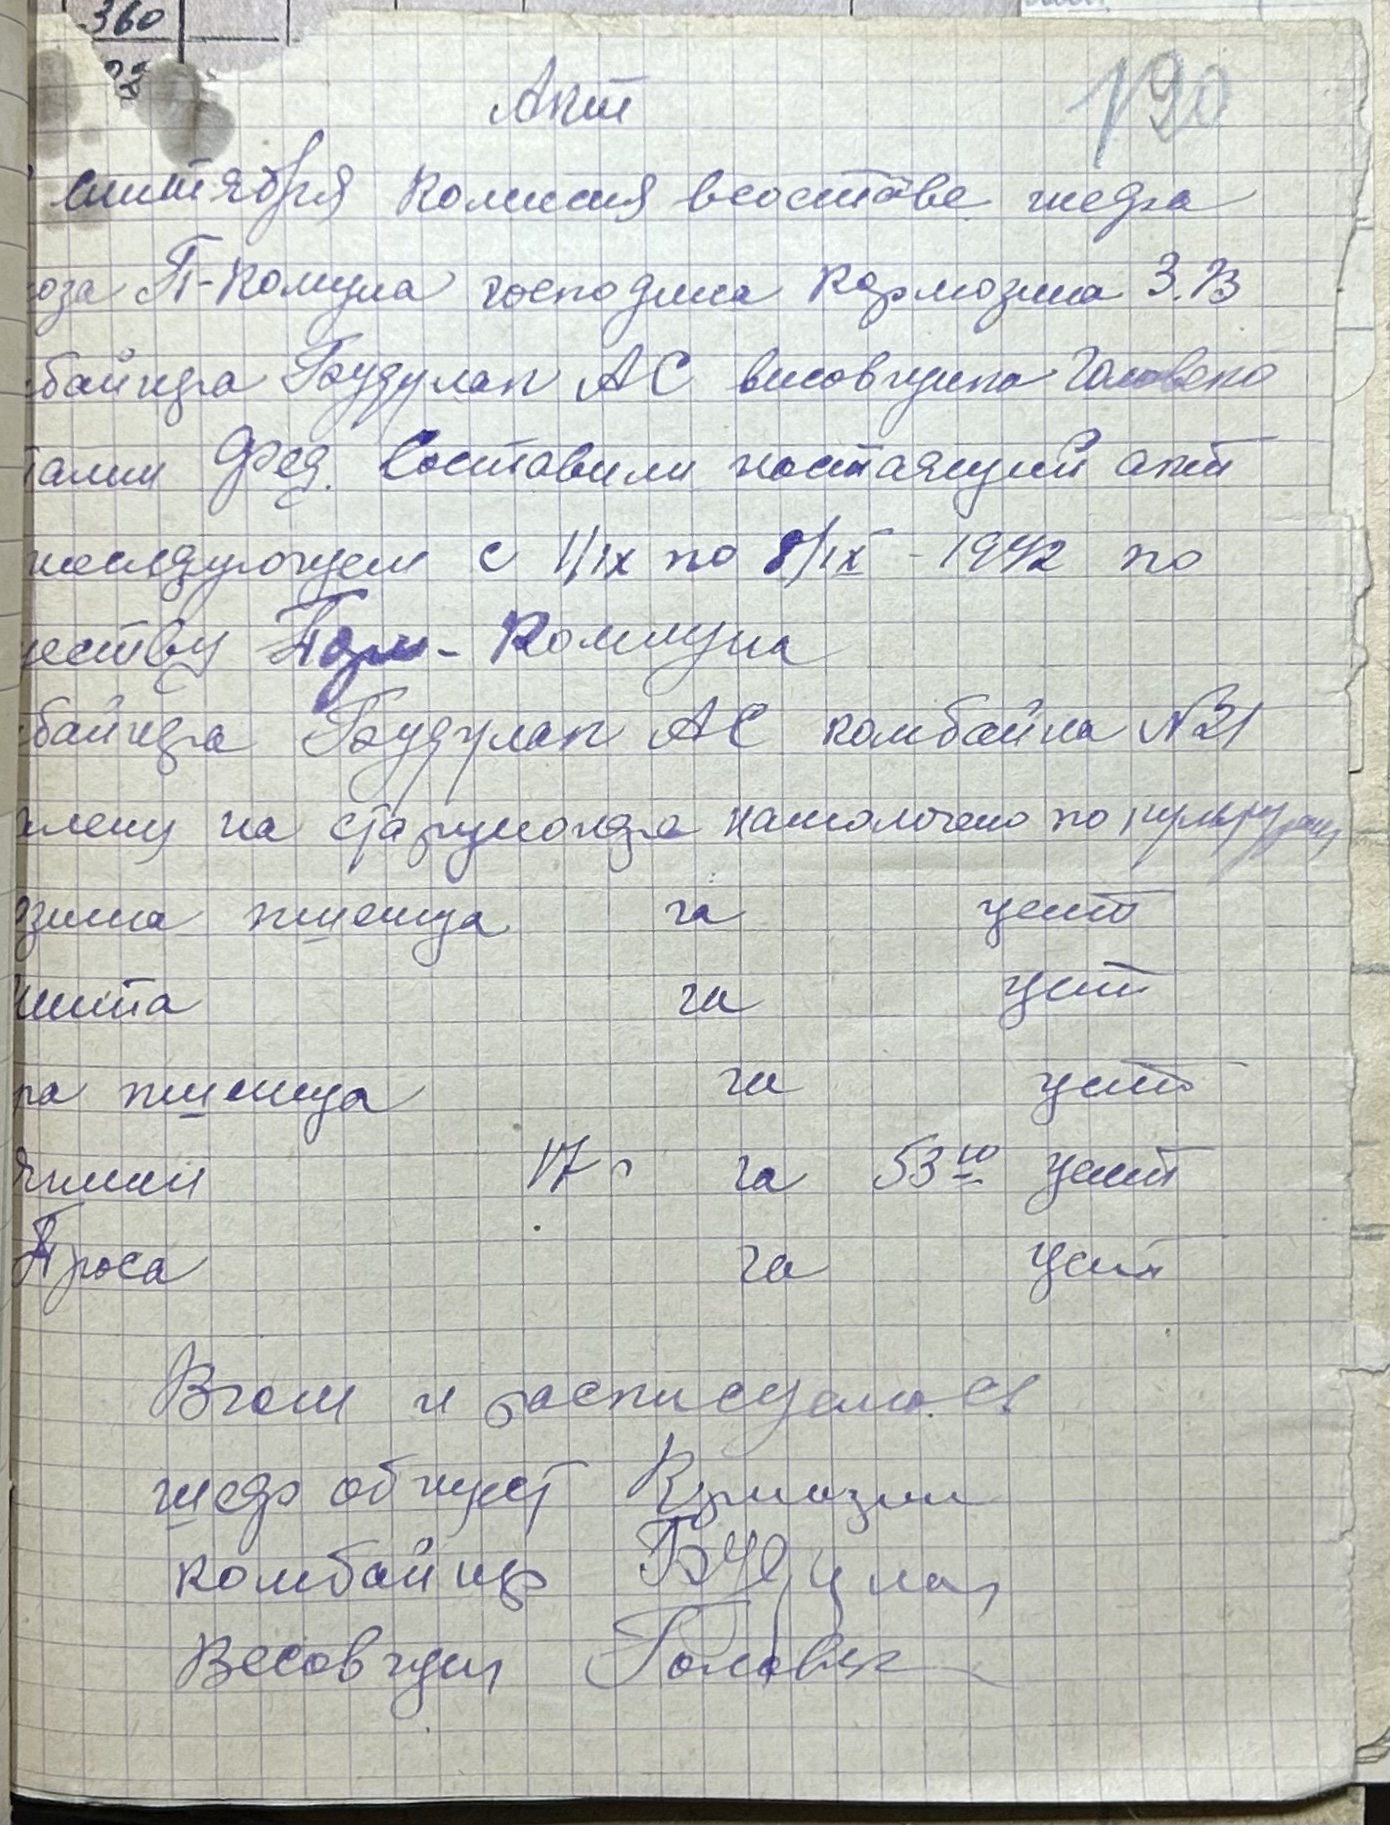 360
Акт
190
синтября комисия всоставе шефа
оза П-Комуна господина Кармозина З.В
байнера Будулак АС висовщика Головко
Фед. Составили ностаящий акт
носледующем с 1/IX по 8/IX - 1942 по
честву Пар-Коммуна
байнера Будулак АС комбайна №21
на намолочено по
озима пшеница га цент
жита га цент
ра пшеница га цент
ячмень 17 га 53 10 цент
Проса га цент
Вчом и расписуемось
шеф общест Кармозин
комбайнер Будулак
Весовщик Головко